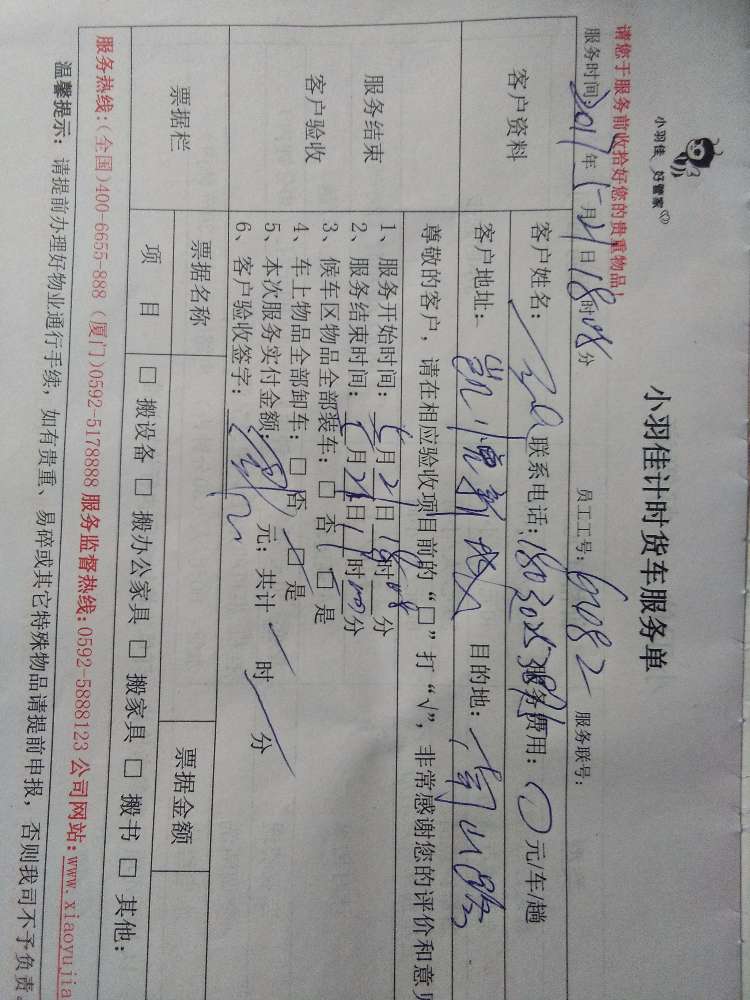 小羽佳 好管家
小羽佳计时货车服务单
请您于服务前收拾好您的贵重物品!
服务时间: 2017年5月21日18时08分 员工工号: 6082 服务联号:
客户资料
客户姓名: 联系电话: 服务费用: 0元/车/趟
客户地址: 目的地: 南山路
尊敬的客户，请在相应验收项目前的“口”打“√”，非常感谢您的评价和意见
服务结束
客户验收
1、服务开始时间: 5月21日18时08分
2、服务结束时间: 5月21日 时00分
3、候车区物品全部装车: □ 否 □ 是
4、车上物品全部卸车: □ 否 □ 是
5、本次服务实付金额: 元; 共计 时 分
6、客户验收签字:
票据栏
票据名称 票据金额
项 目 □ 搬设备 □ 搬办公家具 □ 搬家具 □ 搬书 □ 其他:
服务热线:(全国)400-6655-888 (厦门)0592-5178888 服务监督热线:0592-5888123 公司网站:www.xiaoyujia
温馨提示: 请提前办理好物业通行手续，如有贵重、易碎或其它特殊物品请提前申报，否则我司不予负责。